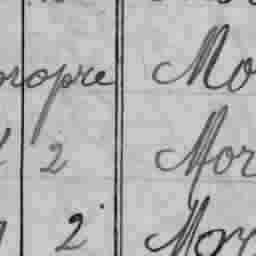 propre Mo
2 Mor
2 Mor